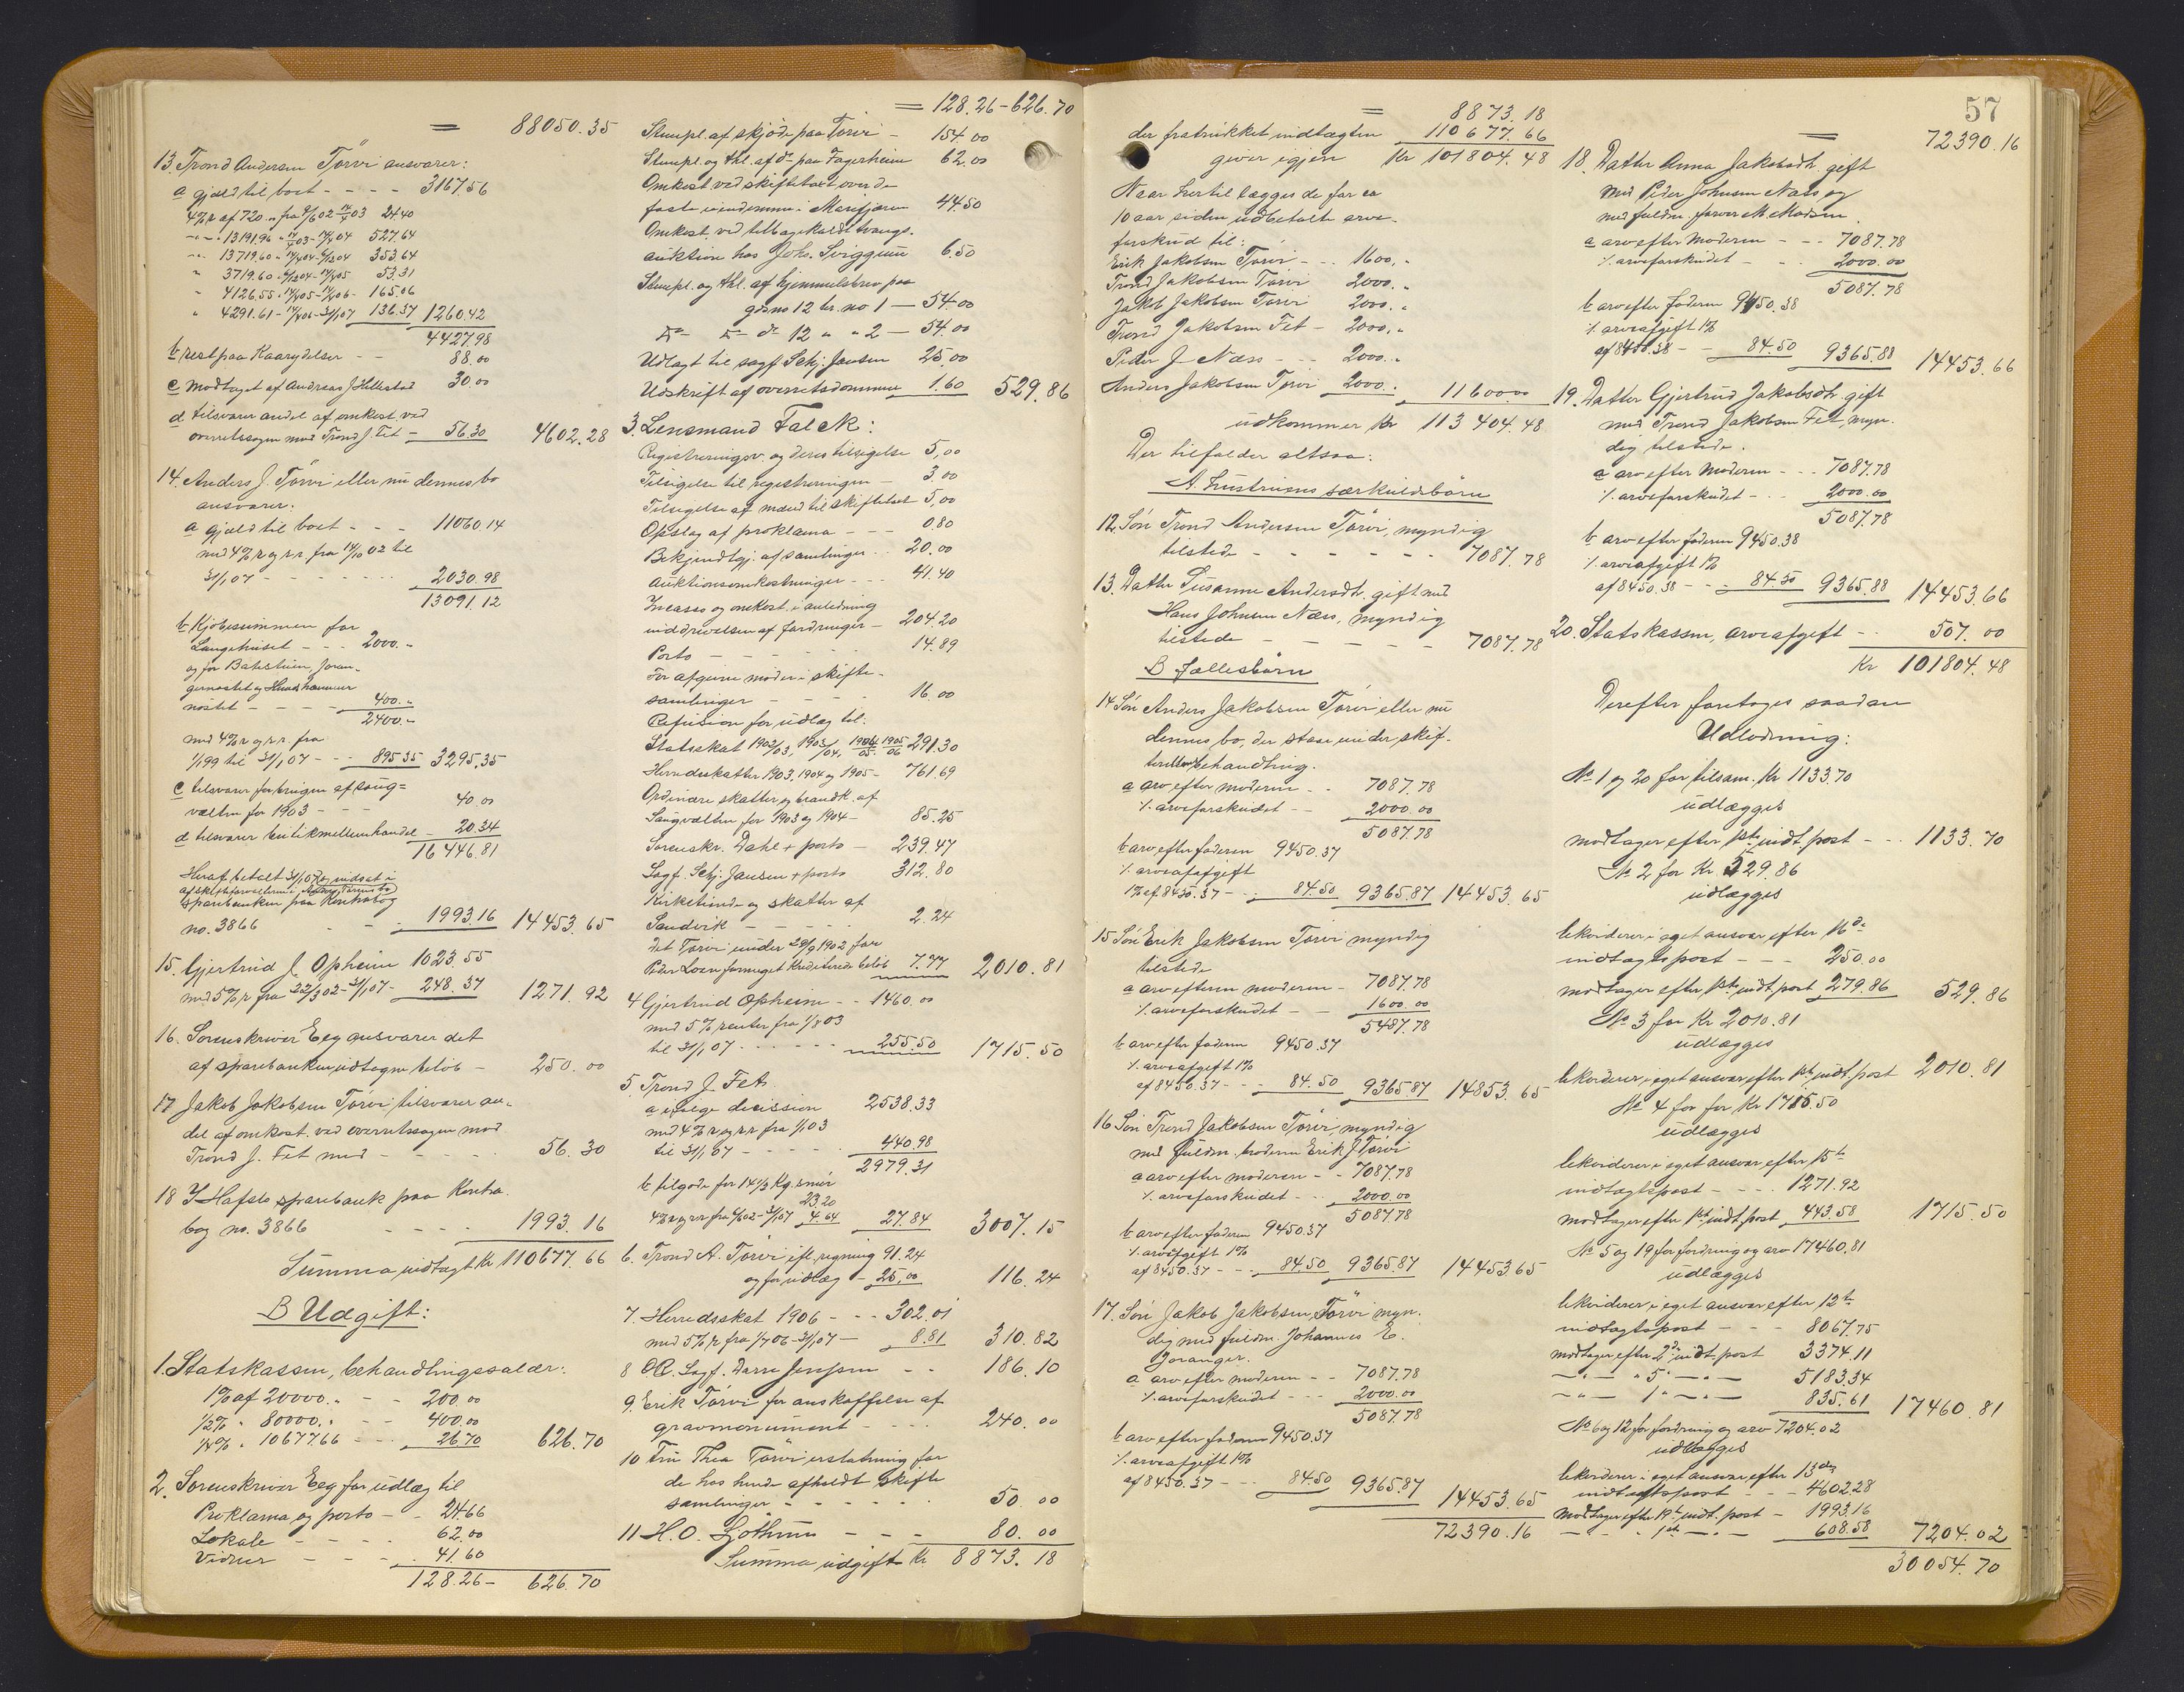 = 88050.35
13. Trond Andersen Tørvi ansvarer:
a gjæld til boet - - - - 3167.56
4% r. af 720.- fra 9/6 02 - 14/4 03 24.40
-"- - 13191.96 - 14/4 03 - 14/4 04 527.64
-"- 13719.60 - 14/4 04 - 6/12 04 353.64
" 3719.60 - 6/12 04 - 14/4 05 53.31
" 4126.55 - 14/4 05 - 14/4 06 - 165.06
" 4291.61 - 14/4 06 - 31/1 07 136.37 1260.42
4427.98
b rest paa Kaarydelser - - 88.00
c modtaget af Andreas J Hillestad 30.00
d tilsvarer andel af omkost. ved
overretssagen mod Trond J. Fet - 56.30 4602.28
14. Anders J. Tørvi eller nu dennes bo
ansvarer:
a gjæld til boet - - - 11060.14
med 4% r. og r.r. fra 14/10 02 til
31/1 07 - - - - - - 2030.98
13091.12
b Kjøbesummen for
Langehuset - - - 2000.-
og for Batestuen, Joran-
gernostet og
nostet - - - - 400.-
2400.-
med 4% r. og r.r. fra
1/1 99 til 31/1 07 - - 895.35 3295.35
c tilsvarer forbringen af saug=
valten for 1903 - - - 40.00
d tilsvarer butikmellemhandel - 20.34
16446.81
Heraf betalt 31/1 07 og indsat i
sparebanken paa Kontrabog
no. 3866 - - - 1993.16 14453.65
15. Gjertrud J. Opheim 1023.55
med 5% r. fra 22/3 02 - 31/1 07 - 248.37 1271.92
16. Sorenskriver Eeg ansvarer det
af sparebanken udtagne beløb - 250.00
17 Jakob Jakobsen Tørvi tilsvarer an-
del af omkost. ved overretssagen mod
Trond J. Fet med - - - - 56.30
18 I Hafslo sparebank paa Kontra-
bog no. 3866 - - - - 1993.16
Summa indtægt Kr 110677.66
B Udgift:
1. Statskassen, behandlingssalær:
1% af 20000.- - - 200.00
1/2% " 80000.- - - 400.00
1/4% " 10677.66 - - - 26.70 626.70
2. Sorenskriver Eeg for udlæg til
Proklama og porto - - 24.66
Lokale - - - - 62.00
Vidner - - - . 41.60
128.26 - 626.70
= 128.26 - 626.70
Stempl. af skjøde paa Tørvi - 154.00
Stempl. og thl. af do paa Fagerheim 62.00
Omkost ved skiftetaxt over de
faste eiendomme i Marifjæren 44.50
Omkost. ved tilbagekaldt tvangs-
auktion hos Johs. Sviggum 6.50
Stempl. og thl. af hjemmelsbrev paa
gdsno 12 br. no 1 - 54.00
do do do 12 " " 2 - 54.00
Udlagt til sagf Schj. Jansen 25.00
Udskrift af overretsdommen 1.60 529.86
3. Lensmand Falck:
Registreringsv. og deres tilsigelse 5,00
Tilsigelse til registreringen - 3.00
Tilsigelse af mænd til skiftetaxt 5,00
Opslag af proklama - - - 0.80
Bekjendtgj. af samlinger - - 20.00
Auktionsomkostninger - - - 41.40
Incasso og omkost. i anledning
inddrivelsen af fordringer - 204.20
Porto - - - - - 14.89
For afgivne møder i skifte-
samlinger - - - - 16.00
Refusion for udlæg til:
Statsskat 1902/03, 1903/04, 1904/05 1905/06 291.30
Herredsskatter 1903, 1904 og 1905 - 761.69
Ordinære skatter og brandk. af
Saugvalten for 1903 og 1904 - 85.25
Sorenskr. Dahl + porto - 239.47
Sagf. Schj. Jansen + porto 312.80
Kirketiende og skatter af
Sandvik - - - - - 2.24
Det Tørvi under 29/9 1902 for
Peder Loen formeget krediterede beløb 7.77 2010.81
4 Gjertrud Opheim - - 1460.00
med 5% renter fra 1/8 03
til 31/1 07 - - - - - - 255.50 1715.50
5 Trond J. Fet
a ifølge decission 2538.33
med 4% r. og r.r. fra 1/1 03
til 31/1 07 - - - - 440.98
2979.31
b tilgode for 14 1/2 Kg. smør
23.20
4% r. og r.r. fra 6/6 02 - 31/1 07 4.64 27.84 3007.15
6. Trond A. Tørvi ifl. regning 91.24
og for udlæg - 25,00 116.24
7. Herredsskat 1906 - - - 302.01
med 5% r. fra 1/7 06 - 31/1 07 - 8.81 310.82
8 OR. Sagf. Darre Jenssen - - 186.10
9. Erik Tørvi for anskaffelse af
gravmonument - - - - 240.00
10 Fru Thea Tørvi erstatning for
de hos hende afholdt skifte
samlinger - - - - - - 50.00
11 H.O. Gothun - - - 80.00
Summa udgift Kr 8873.18
57
= 8873.18
der fratrukket indtægten 110677.66
giver igjen Kr 101804.48
Naar hertil lægges de for ca
10 aar siden udbetalte arve-
forskud til:
Erik Jakobsen Tørvi - - . 1600.-
Trond Jakobsen Tørvi 2000.-
Jakob Jakobsen Tørvi 2000.-
Trond Jakobsen Fet - 2000.-
Peder J. Næss - - - 2000.-
Anders Jakobsen Tørvi 2000.- 11600.00
udkommer Kr 113404.48
Der tilfalder altsaa:
A. hustruens særkuldsbørn
12. Søn Trond Andersen Tørvi, myndig
tilstede - - - - - - - 7087.78
13. Datter Susanne Andersdt. gift med
Hans Johnsen Næss, myndig
tilstede - - - - - 7087.78
B fællesbørn
14 Søn Anders Jakobsen Tørvi eller nu
dennes bo, der staar under skif-
tebehandling.
a arv efter moderen - - 7087.78
./. arveforskudet - - 2000.00
5087.78
b arv efter faderen 9450.37
./. arveafgift
1% af 8450.37 - - 84.50 9365.87 14453.65
15 Søn Erik Jakobsen Tørvi myndig
tilstede
a arv efter moderen - 7087.78
./. arveforskudet - - 1600.00
5487.78
b arv efter faderen 9450.37
./. arveafgift 1%
af 8450.37 - - - 84.50 9365.87 14853.65
16 Søn Trond Jakobsen Tørvi, myndig
med fuldm. broderen Erik J. Tørvi
a arv efter moderen - - 7087.78
./. arveforskudet - - 2000.00
5087.78
b arv efter faderen 9450.37
./. arveafgift 1%
af 8450.37 - - - 84.50 9365.87 14453.65
17. Søn Jakob Jakobsen Tørvi myn-
dig med fuldm. Johannes E.
Joranger.
a arv efter moderen - - 7087.78
./. arveforskudet - - - 2000.00
5087.78
b arv efter faderen 9450.37
./. arveafgift 1%
af 8450.37 - - - 84.50 9365.87 14453.65
72390.16
= 72390.16
18. Datter Anna Jakobsdt. gift
med Peder Johnsen Næss og
med fuldm. farver M. Madsen.
a arv efter moderen - - - 7087.78
./. arveforskudet - - . 2000.00
5087.78
b arv efter faderen 9450.38
./. arveafgift 1%
af 8450.38 - - 84.50 9365.88 14453.66
19. Datter Gjertrud Jakobsdt. gift
med Trond Jakobsen Fet, myn-
dig tilstede.
a arv efter moderen - - - 7087.78
./. arveforskudet - - - 2000.00
5087.78
b arv efter faderen 9450.38
./. arveafgift 1%
af 8450.38 - - - 84.50 9365.88 14453.66
20. Statskassen, arveafgift - - 507.00
Kr 101804.48
Derefter foretoges saadan
Udlodning:
No 1 og 20 for tilsam. Kr 1133.70
udlægges
modtager efter 1ste indt. post - - - 1133.70
No 2 for Kr 529.86
udlægges
likviderer i eget ansvar efter 16de
indtægtspost - - - 250.00
modtager efter 1ste indt. post 279.86 529.86
No 3 for Kr 2010.81
udlægges
likviderer i eget ansvar efter 1ste indt. post 2010.81
No 4 for for Kr 1715.50
udlægges
likviderer i eget ansvar efter 15de
indtægtspost - - - . 1271.92
modtager efter 1ste indt. post 443.58 1715.50
No 5 og 19 for fordring og arv 17460.81
udlægges
likviderer i eget ansvar efter 12te
indtægtspost - - - 8067.75
modtager efter 2den indt. post 3374.11
- " - " 5te - " - 5183.34
- " - 1ste - " - 835.61 17460.81
No 6 og 12 for fordring og arv 7204.02
udlægges
likviderer i eget ansvar efter 13des
indtægtspost - - - 4602.28
modtager efter 18de indt. post - 1993.16
- " - 1ste - " - 608.58 7204.02
30054.70